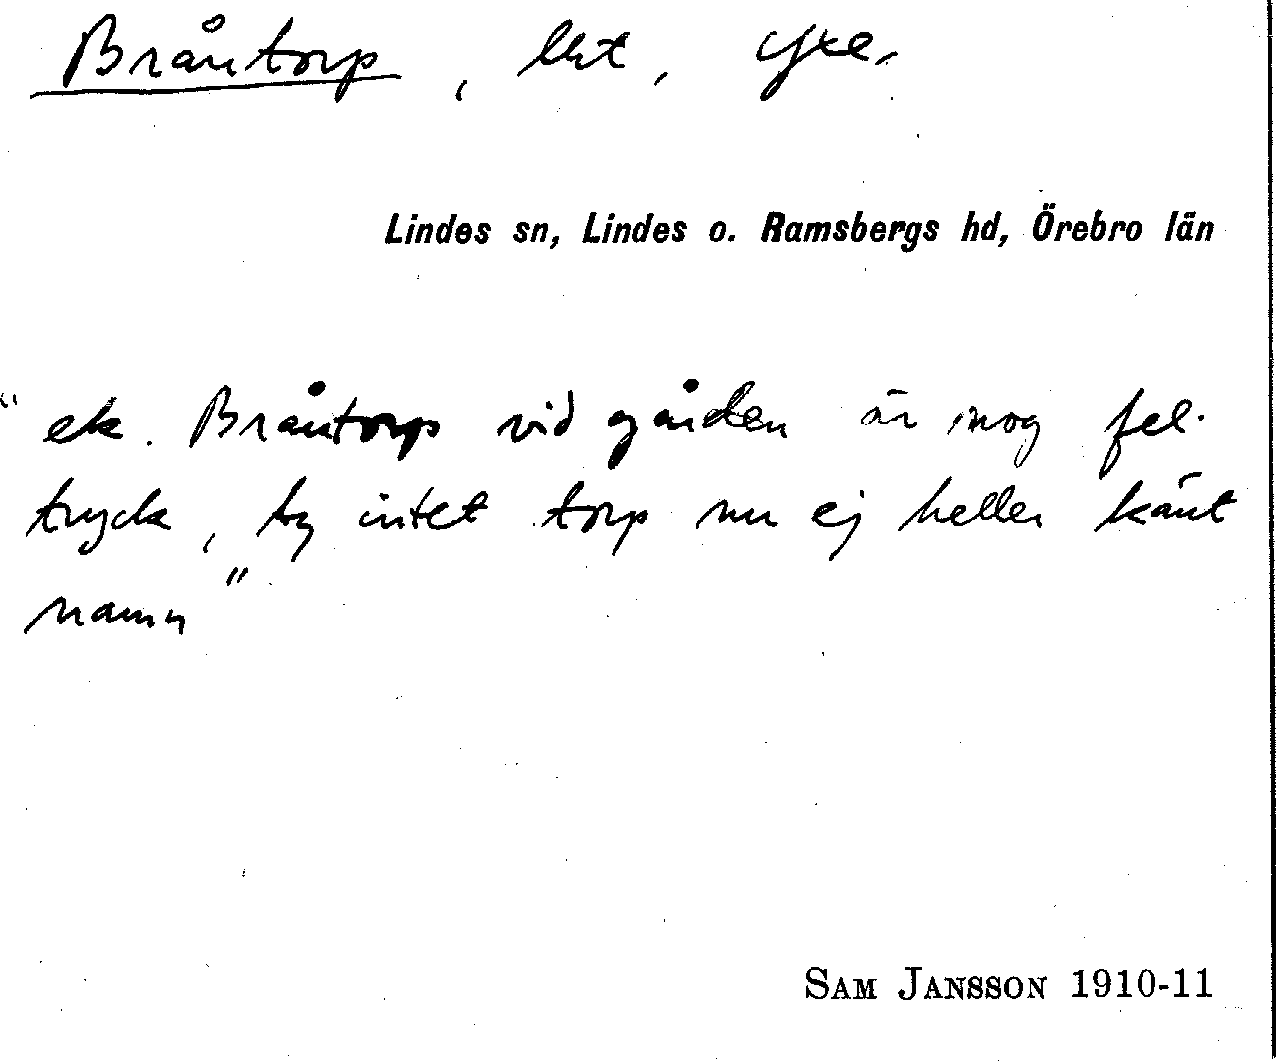 Bråntorp, lht,
Lindes sn, Lindes o. Ramsbergs hd, Örebro län
"ek. Bråntorp vid gården är nog fel-
tryck, ty intet torp nu ej heller känt
namn"
SAM JANSSON 1910-11